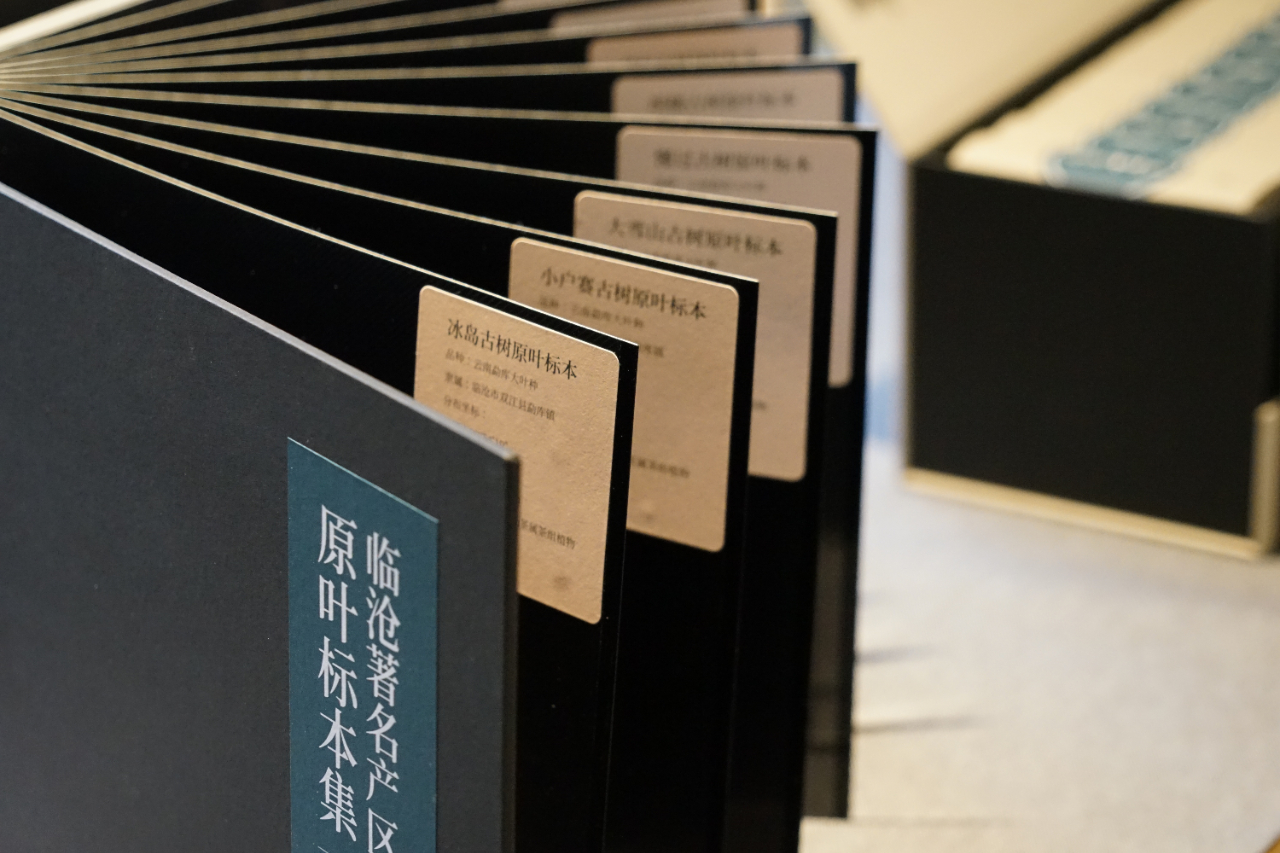 临沧著名产区
原叶标本集
冰岛古树原叶标本
品种：云南勐库大叶种
隶属：临沧市双江县勐库镇
分布坐标：
茶属茶组植物
小户赛古树原叶标本
品种：云南勐库大叶种
属茶组植物
大雪山古树原叶标本
古树原叶标本